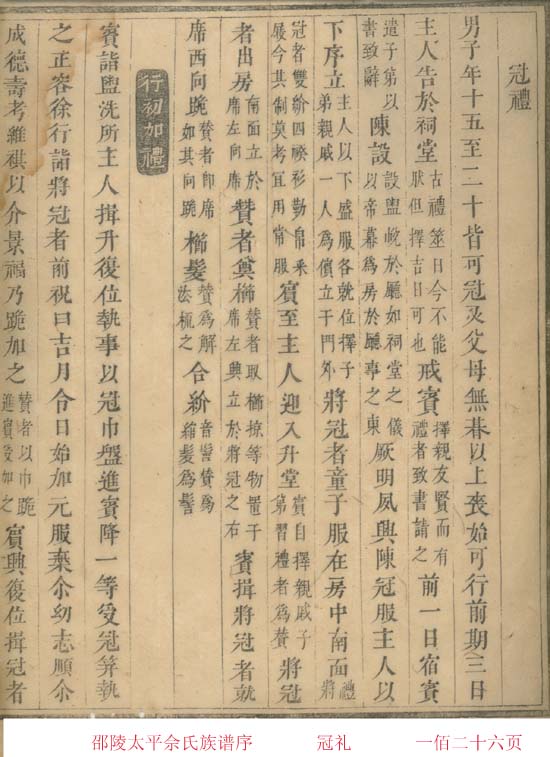 冠禮
男子年十五至二十皆可冠及父母無朞以上喪始可行前期三日
主人告於祠堂 古禮筮日今不能狀但擇吉日可也 戒賓 擇親友賢而有禮者致書請之 前一日宿賓
遣子第以書致辭 陳設 設盥帨於廳如祠堂之儀以帟幕為房於廳事之東 厥明夙興陳冠服主人以
下序立 主人以下盛服各就位擇子弟親戚一人為儐立于門外 將冠者童子服在房中南面 禮將
冠者雙紒四䙆衫勒帛釆屨今其制莫考宜用常服 賓至主人迎入升堂 賓自擇親戚子第習禮者為贊 將冠
者出房 南面立於席左向席 贊者奠櫛 贊者取櫛等物置于席左興立於將冠之右 賓揖將冠者就
席西向跪 贊者即席如其向跪 櫛髮 贊為解梳之 合紒 音髻贊為縮髮為髻
行初加禮
賓詣盥洗所主人揖升復位執事以冠巾盤進賓降一等受冠筓執
之正容徐行詣將冠者前祝曰吉月令日始加元服棄尒幼志順尒
成德壽考維祺以介景福乃跪加之 贊者以巾跪進賓受加之 賓興復位揖冠者
邵陵太平余氏族谱序 冠礼 一佰二十六页